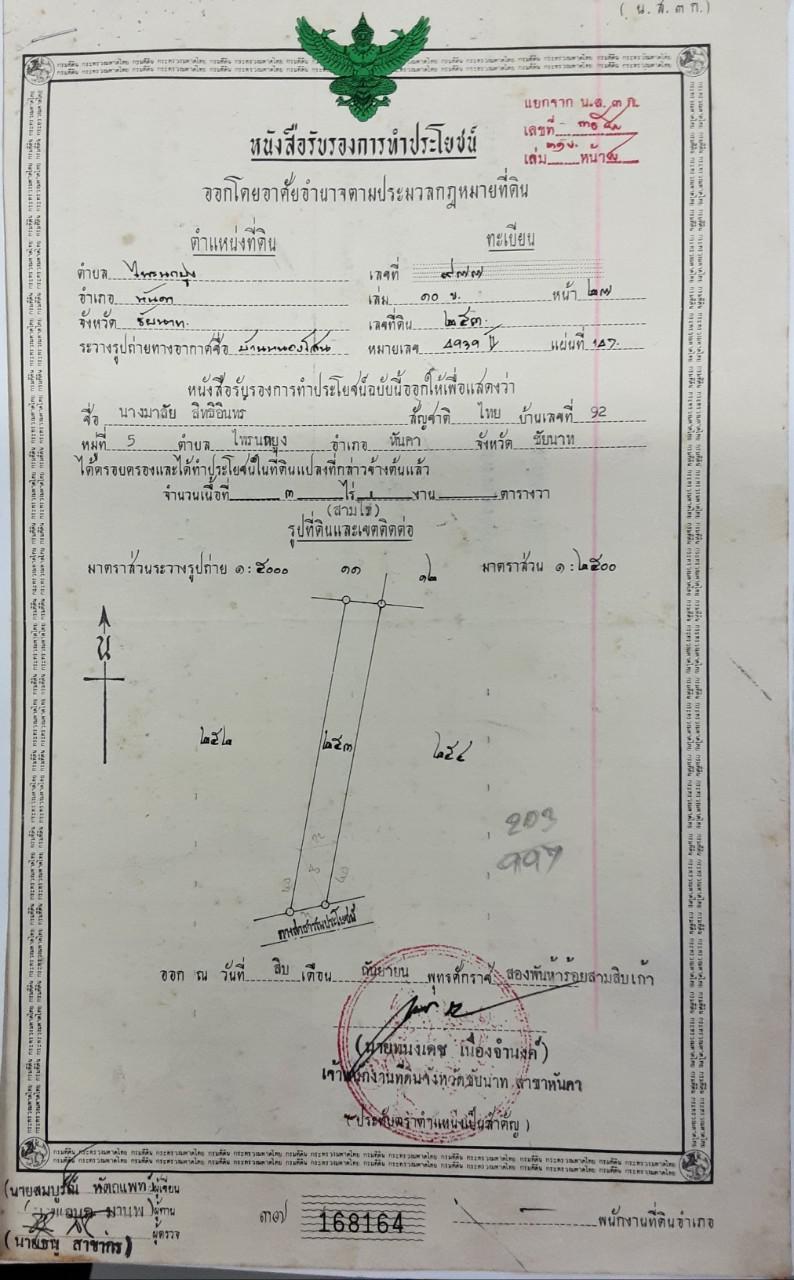 ( น.ส.๓ ก.)
แยกจาก น.ส.๓ ก.
เลขที่
เล่ม หน้า
หนังสือรับรองการทำประโยชน์
ออกโดยอาศัยอำนาจตามประมวลกฎหมายที่ดิน
ตำแหน่งที่ดิน ทะเบียน
ตำบล ไพรนกยูง เลขที่ ๙๗๗
อำเภอ หันคา เล่ม ๑๐ ข. หน้า ๒๗
จังหวัด ชัยนาท. เลขที่ดิน ๒๕๓.
ระวางรูปถ่ายทางอากาศชื่อ บ้านหนองโสน หมายเลข 4939 II แผ่นที่ 147.
หนังสือรับรองการทำประโยชน์ฉบับนี้ออกให้เพื่อแสดงว่า
ชื่อ นางมาลัย สิทธิอินทร สัญชาติ ไทย บ้านเลขที่ 92
หมู่ที่ 5 ตำบล ไพรนกยูง อำเภอ หันคา จังหวัด ชัยนาท
ได้ครอบครองและได้ทำประโยชน์ในที่ดินแปลงที่กล่าวข้างต้นแล้ว
จำนวนเนื้อที่ ๓ ไร่ งาน ตารางวา
(สามไร่)
รูปที่ดินและเขตติดต่อ
มาตราส่วนระวางรูปถ่าย ๑ : ๕๐๐๐ ๑๑ ๑๒ มาตราส่วน ๑ : ๒๕๐๐
น
๒๕๒ ๒๕๓ ๒๕๔
203
997
ทางสาธารณประโยชน์
ออก ณ วันที่ สิบ เดือน กันยายน พุทธศักราช สองพันห้าร้อยสามสิบเก้า
(นายทนงเดช เนื่องจำนงค์)
เจ้าพนักงานที่ดินจังหวัดชัยนาท สาขาหันคา
(ประทับตราตำแหน่งเป็นสำคัญ)
(นายสมบูรณ์ หัตถแพทย์) ผู้เขียน
ผู้ทาน
ผู้ตรวจ
(นายธนู สาชากร)
๓๗ 168164 พนักงานที่ดินอำเภอ